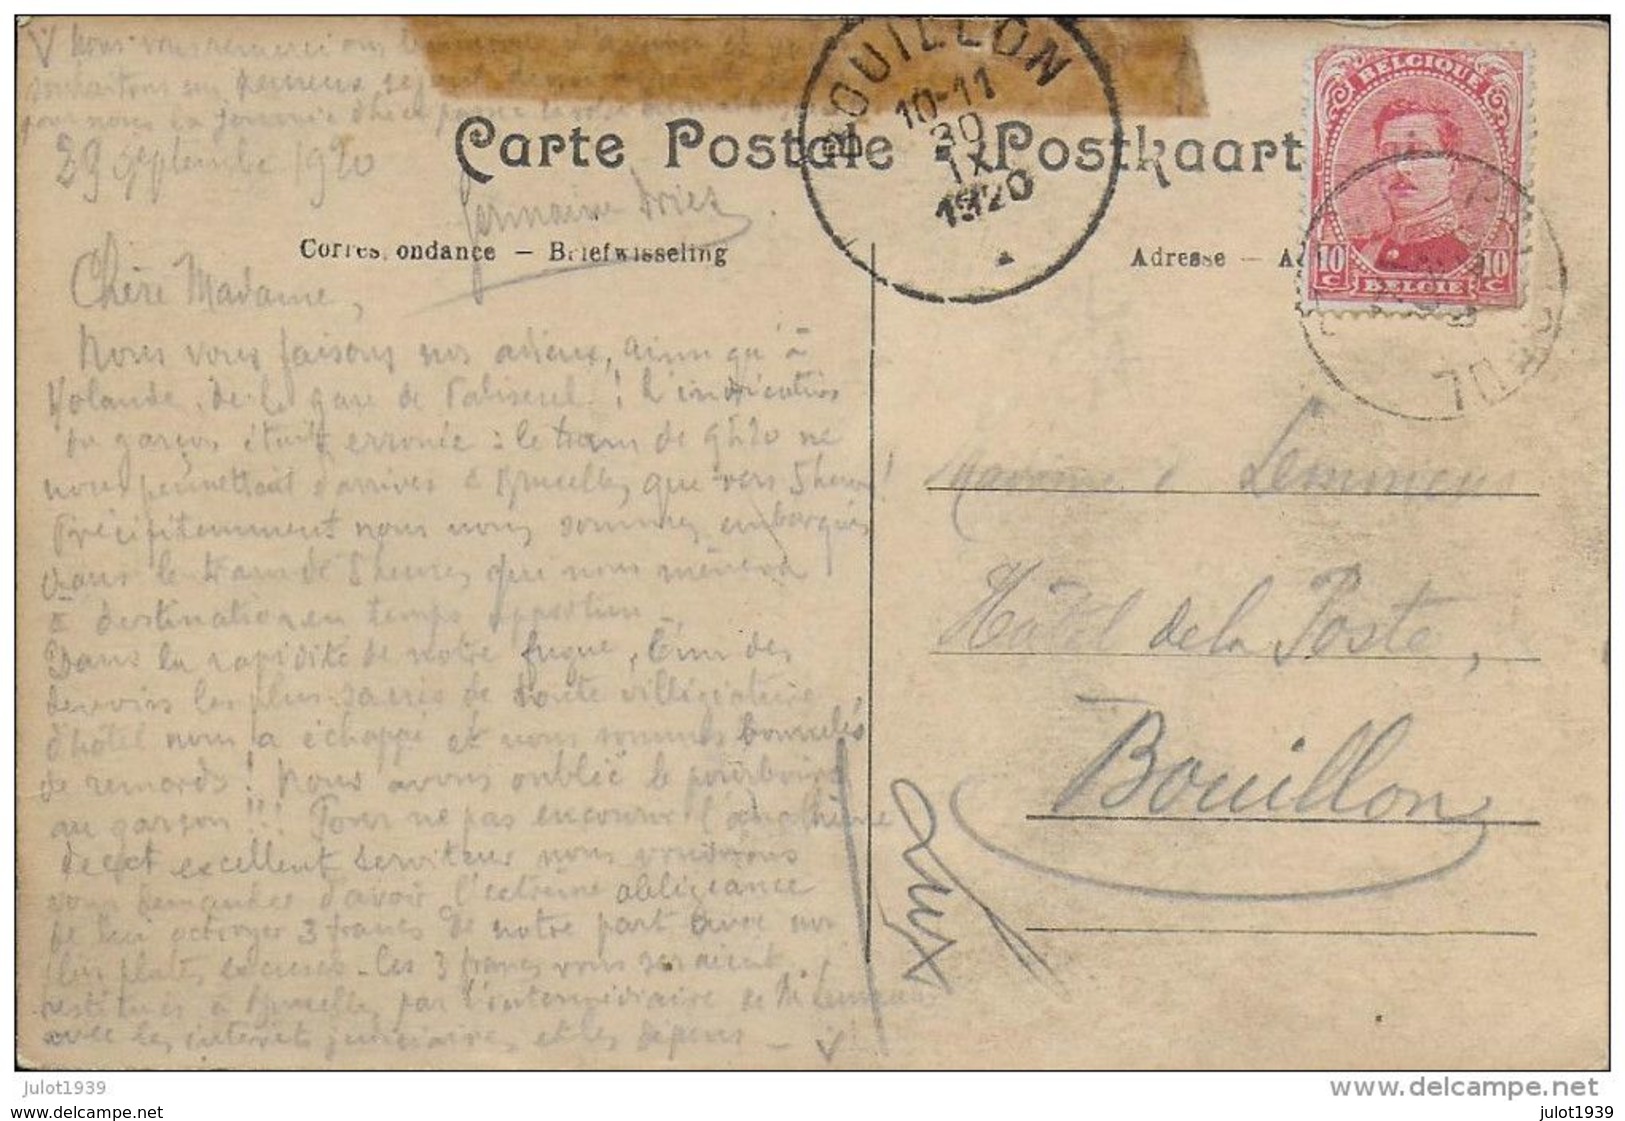 V Nous vous remercions
souhaitons un heureux séjour
pour nous la journée d'hier
29 septembre 1920
Germaine Dries
Carte Postale – Postkaart
Correspondance – Briefwisseling
Adresse – A
BOUILLON
10-11
30
IX
1920
BELGIQUE
10 C 10 C
BELGIE
70
Chère Madame,
Nous vous faisons nos adieux, ainsi qu'à
Yolande, de la gare de Paliseul! L'indication
du garçon était erronée : le tram de 9h20 ne
nous permettait d'arriver à Bruxelles que vers 5 heures!
Précipitamment nous nous sommes embarqués
dans le tram de 8 heures qui nous mènera
à destination en temps opportun
Dans la rapidité de notre fugue, l'un des
devoirs les plus sacrés de toute villégiature
d'hôtel nous a échappé et nous sommes bourrelés
de remords! Nous avons oublié le pourboire
au garçon!!! Pour ne pas encourir l'anathème
de cet excellent serviteur nous voudrions
vous demander d'avoir l'extrême obligeance
de lui octroyer 3 francs de notre part avec nos
plus plates excuses. Les 3 francs vous seraient
restitués à Bruxelles par l'intermédiaire de M. Lemmens
avec les intérêts judiciaires et les dépens – V
Madame Lemmens
Hôtel de la Poste,
Bouillon
Lux
julot1939
www.delcampe.net
www.delcampe.net
julot1939